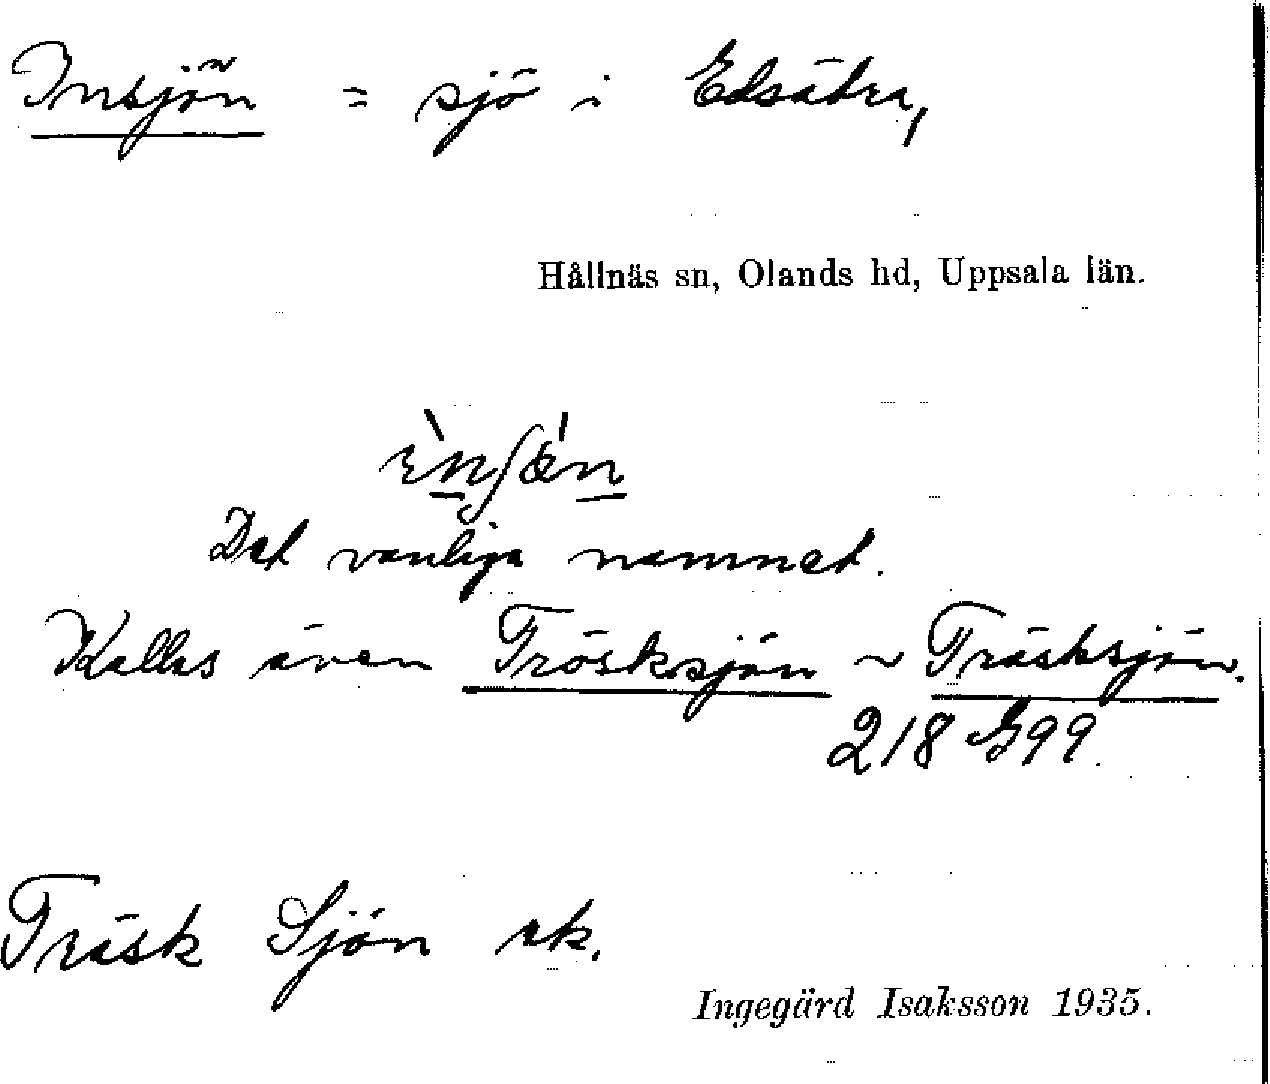 Insjön = sjö i Edsätra,
Hållnäs sn, Olands hd, Uppsala län.
Det vanliga namnet.
Kallas även Trösksjön ~ Träsksjön.
218 G99.
Träsk Sjön ek.
Ingegärd Isaksson 1935.